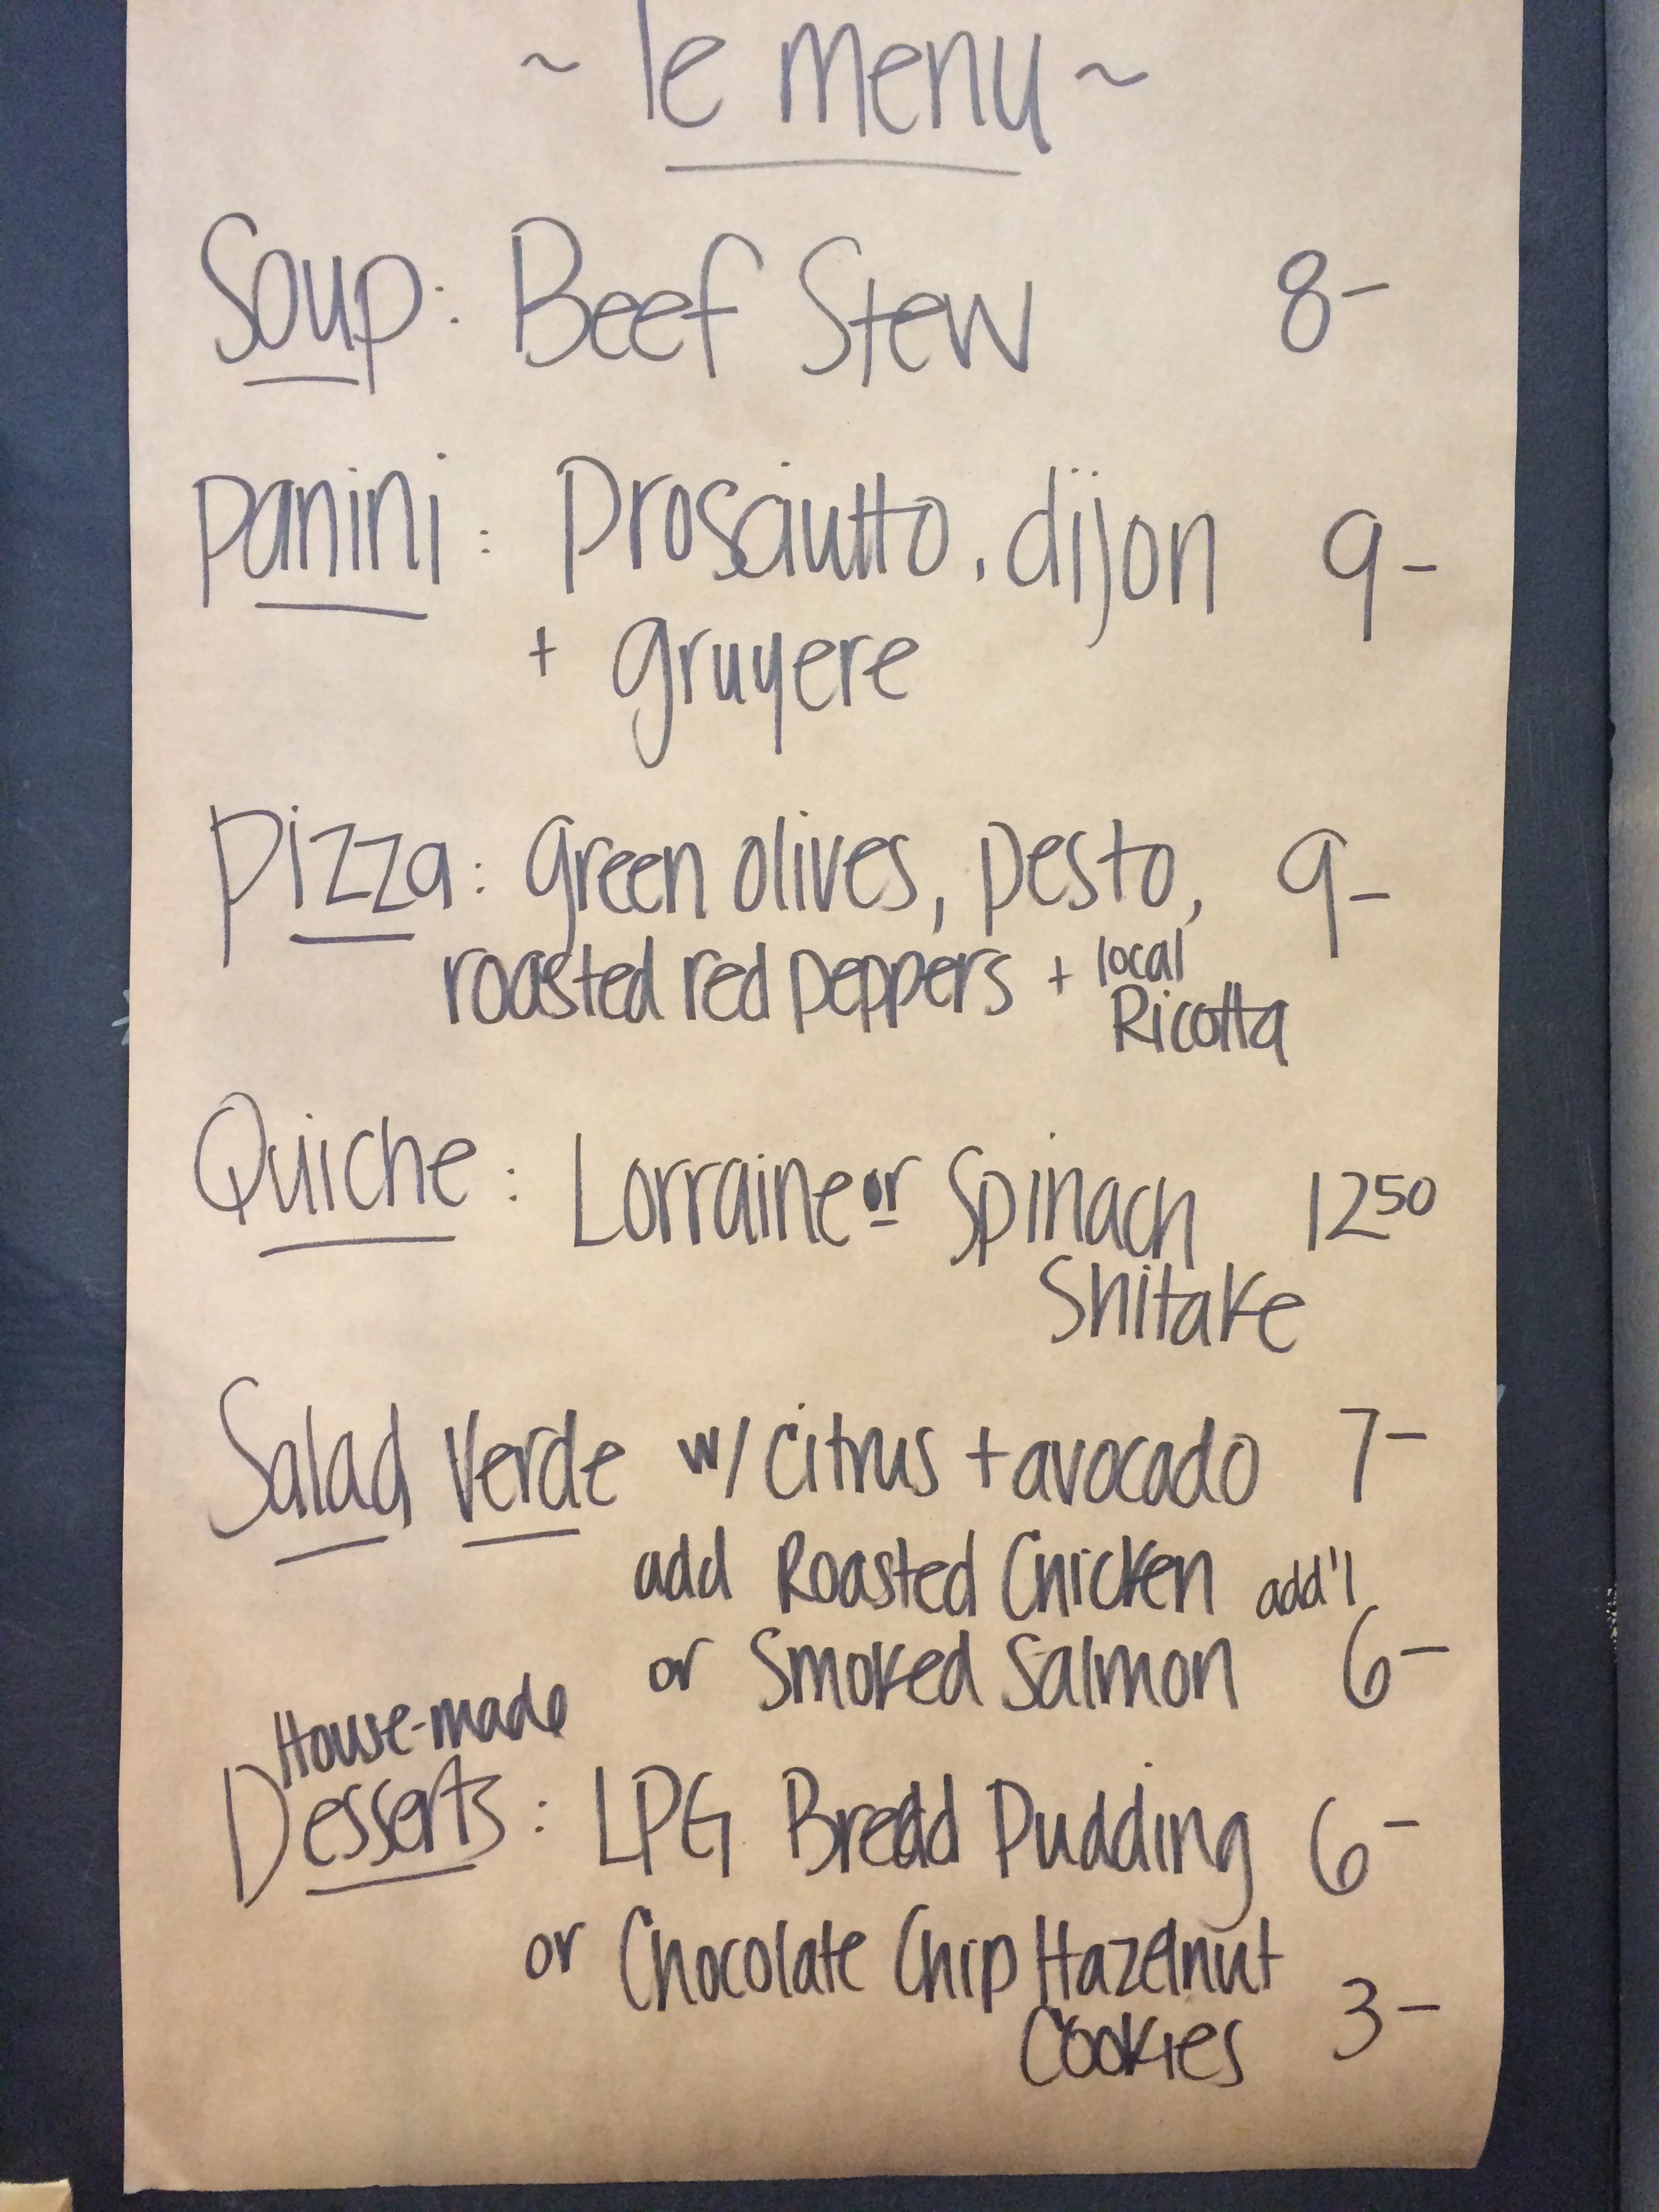 ~ le menu ~
Soup: Beef Stew 8-
Panini: Prosciutto, dijon 9-
+ gruyere
Pizza: green olives, pesto, 9-
roasted red peppers + local
Ricotta
Quiche: Lorraine or Spinach 12 50
Shitake
Salad Verde w/ citrus + avocado 7-
add Roasted Chicken add'l
or Smoked Salmon 6-
House-made
Desserts: LPG Bread Pudding 6-
or Chocolate Chip Hazelnut
Cookies 3-